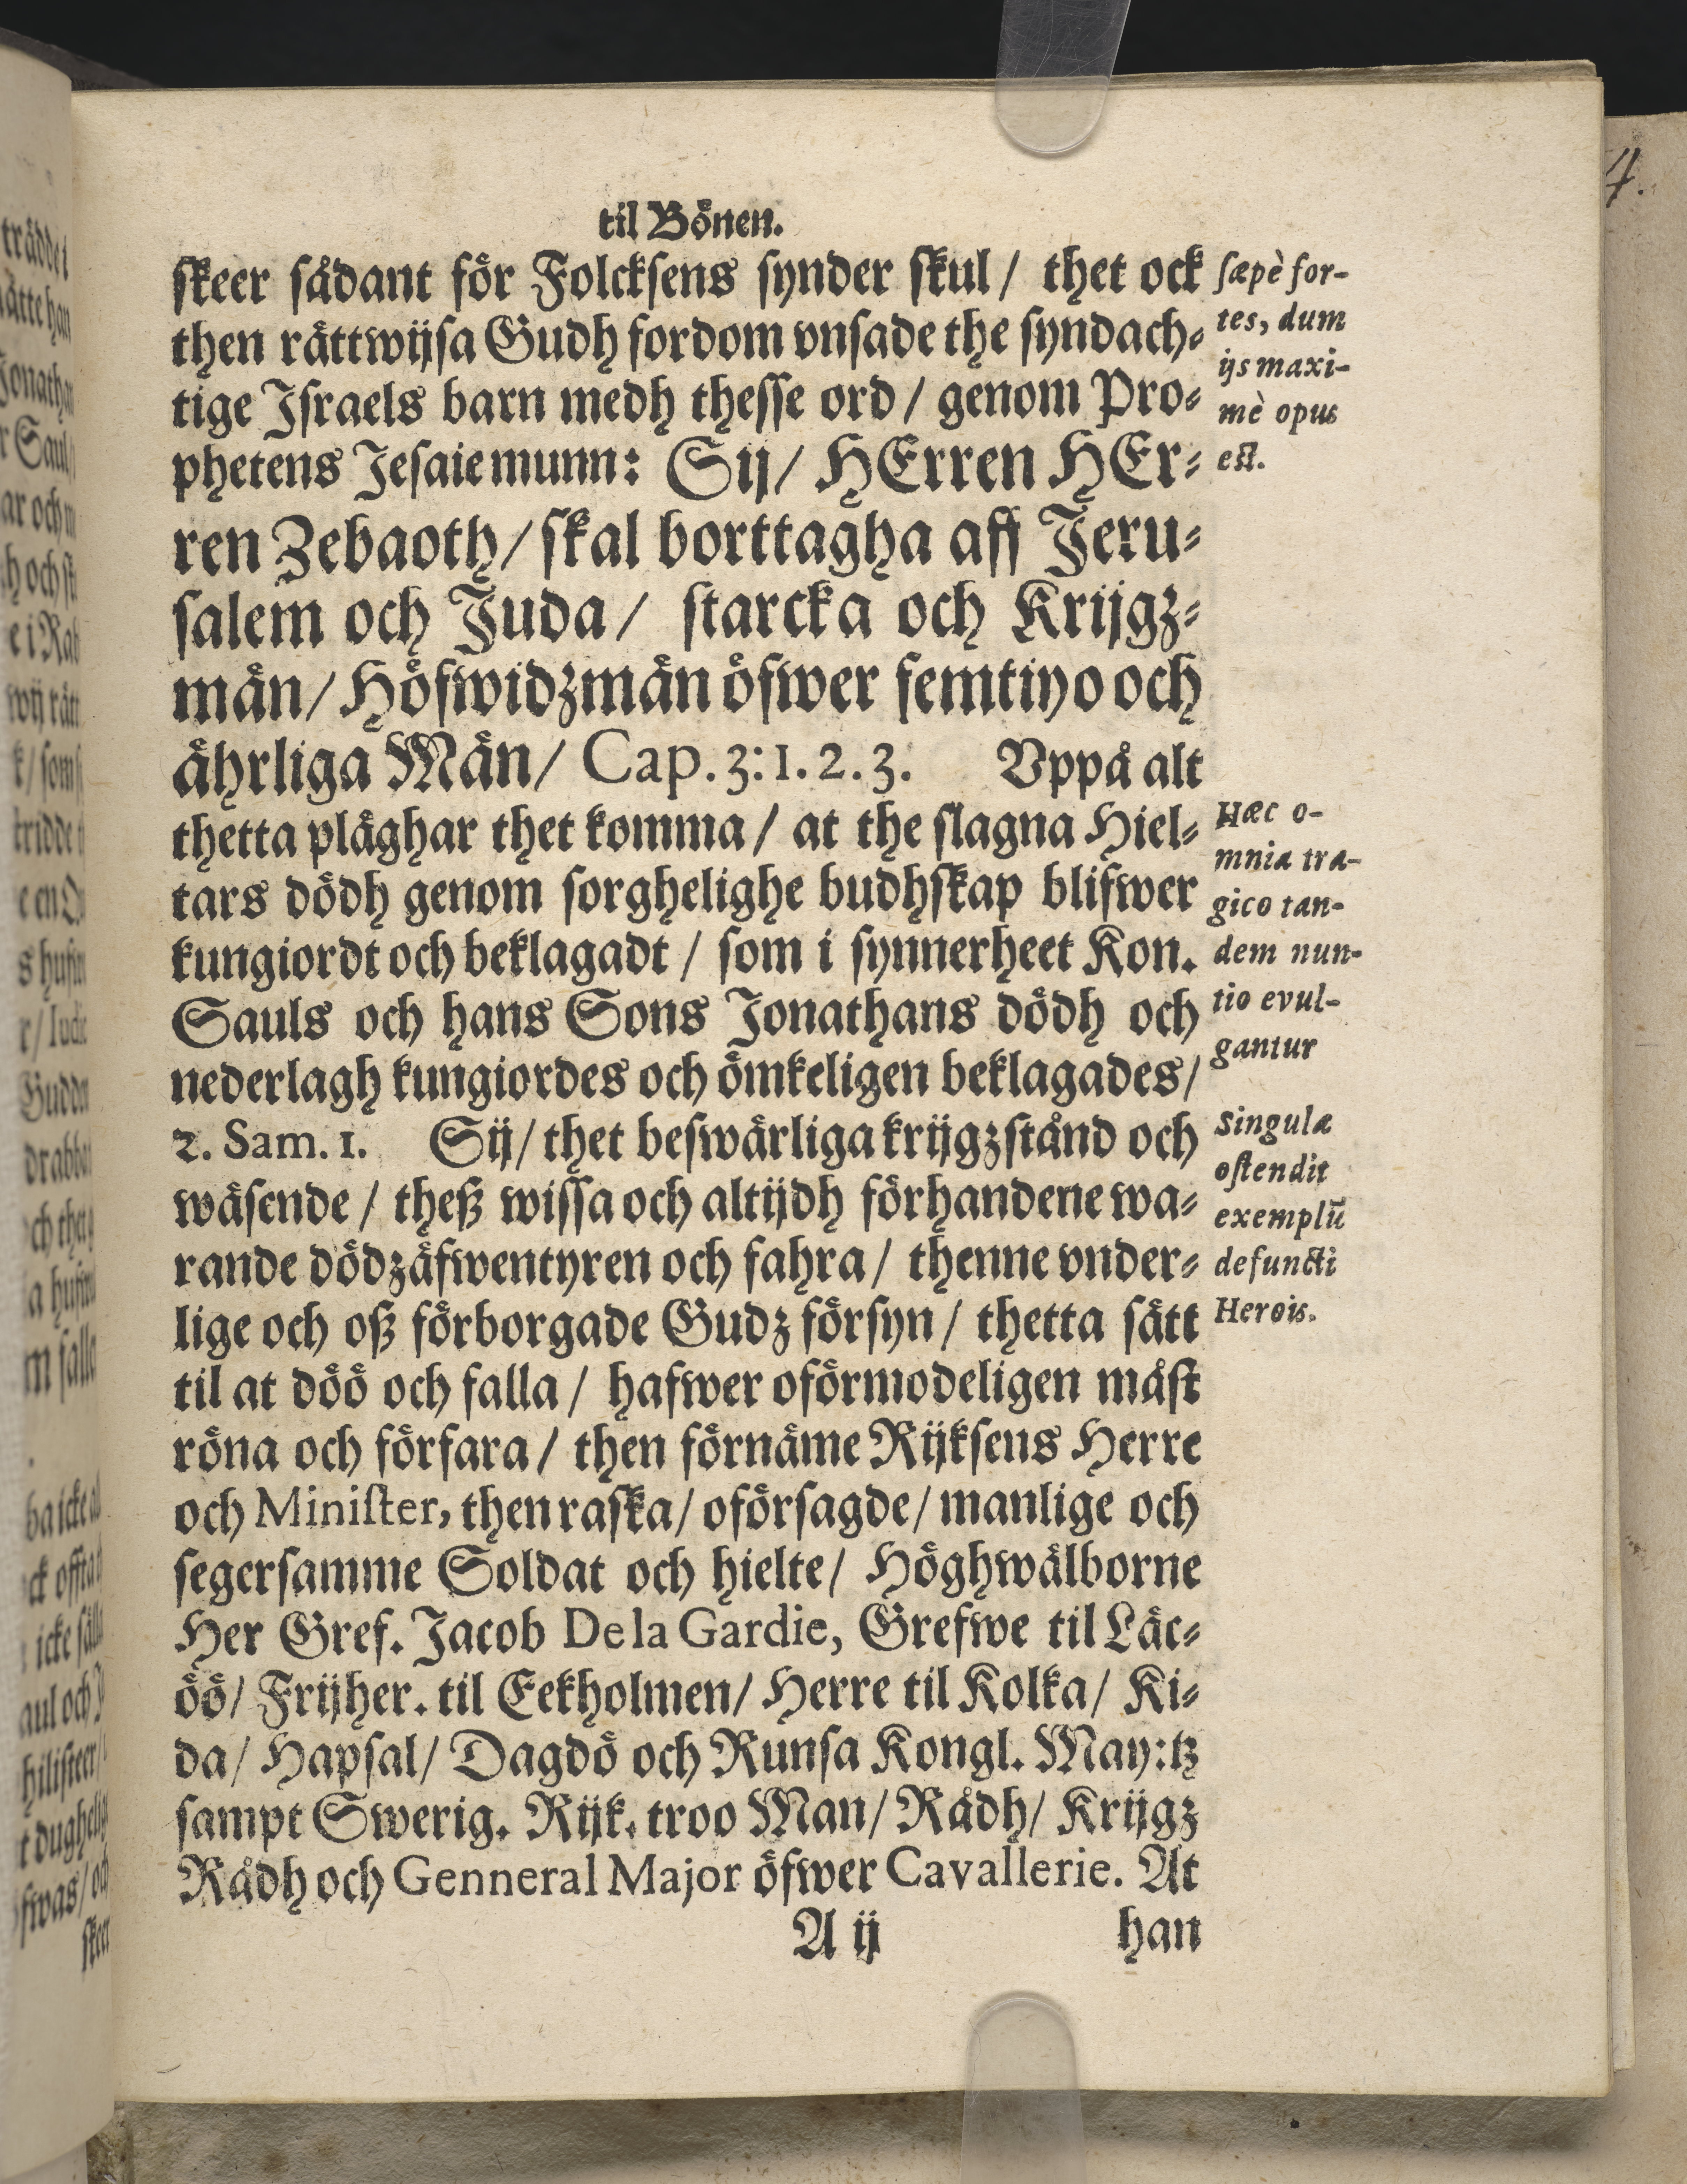 til Bönen.
skeer sådant för Folcksens synder skul / thet ock
then rättwijsa Gudh fordom vnsade the syndach-
tige Israels barn medh thesse ord / genom Pro-
phetens Jesaie munn: Sij / HErren HEr-
ren Zebaoth / skal borttagha aff Jeru-
salem och Juda / starcka och Krijgz-
män / Höfwidzmän öfwer femtiyo och
ährliga Män / Cap. 3: 1. 2. 3. Vppå alt
thetta plåghar thet komma / at the slagna Hiel-
tars dödh genom sorghelighe budhskap blifwer
kungiordt och beklagadt / som i synnerheet Kon.
Sauls och hans Sons Jonathans dödh och
nederlagh kungiordes och ömkeligen beklagades /
2. Sam. 1. Sij / thet beswärliga krijgzstånd och
wäsende / theß wissa och altijdh förhandene wa-
rande dödzäfwentyren och fahra / thenne vnder-
lige och oß förborgade Gudz försyn / thetta sätt
til at döö och falla / hafwer oförmodeligen måst
röna och förfara / then förnäme Rijksens Herre
och Minister, then raska / oförsagde / manlige och
segersamme Soldat och hielte / Höghwälborne
Her Gref. Jacob De la Gardie, Grefwe til Läc-
öö / Frijher. til Eekholmen / Herre til Kolka / Ki-
da / Hapsal / Dagdö och Runsa Kongl. May:tz
sampt Swerig. Rijk. troo Man / Rådh / Krijgz
Rådh och Genneral Major öfwer Cavallerie. At
A ij han
sæpè for-
tes, dum
ijs maxi-
mè opus
est.
Hæc o-
mnia tra-
gico tan-
dem nun-
tio evul-
gantur
Singulæ
ostendit
exemplū
defuncti
Herois.
4.